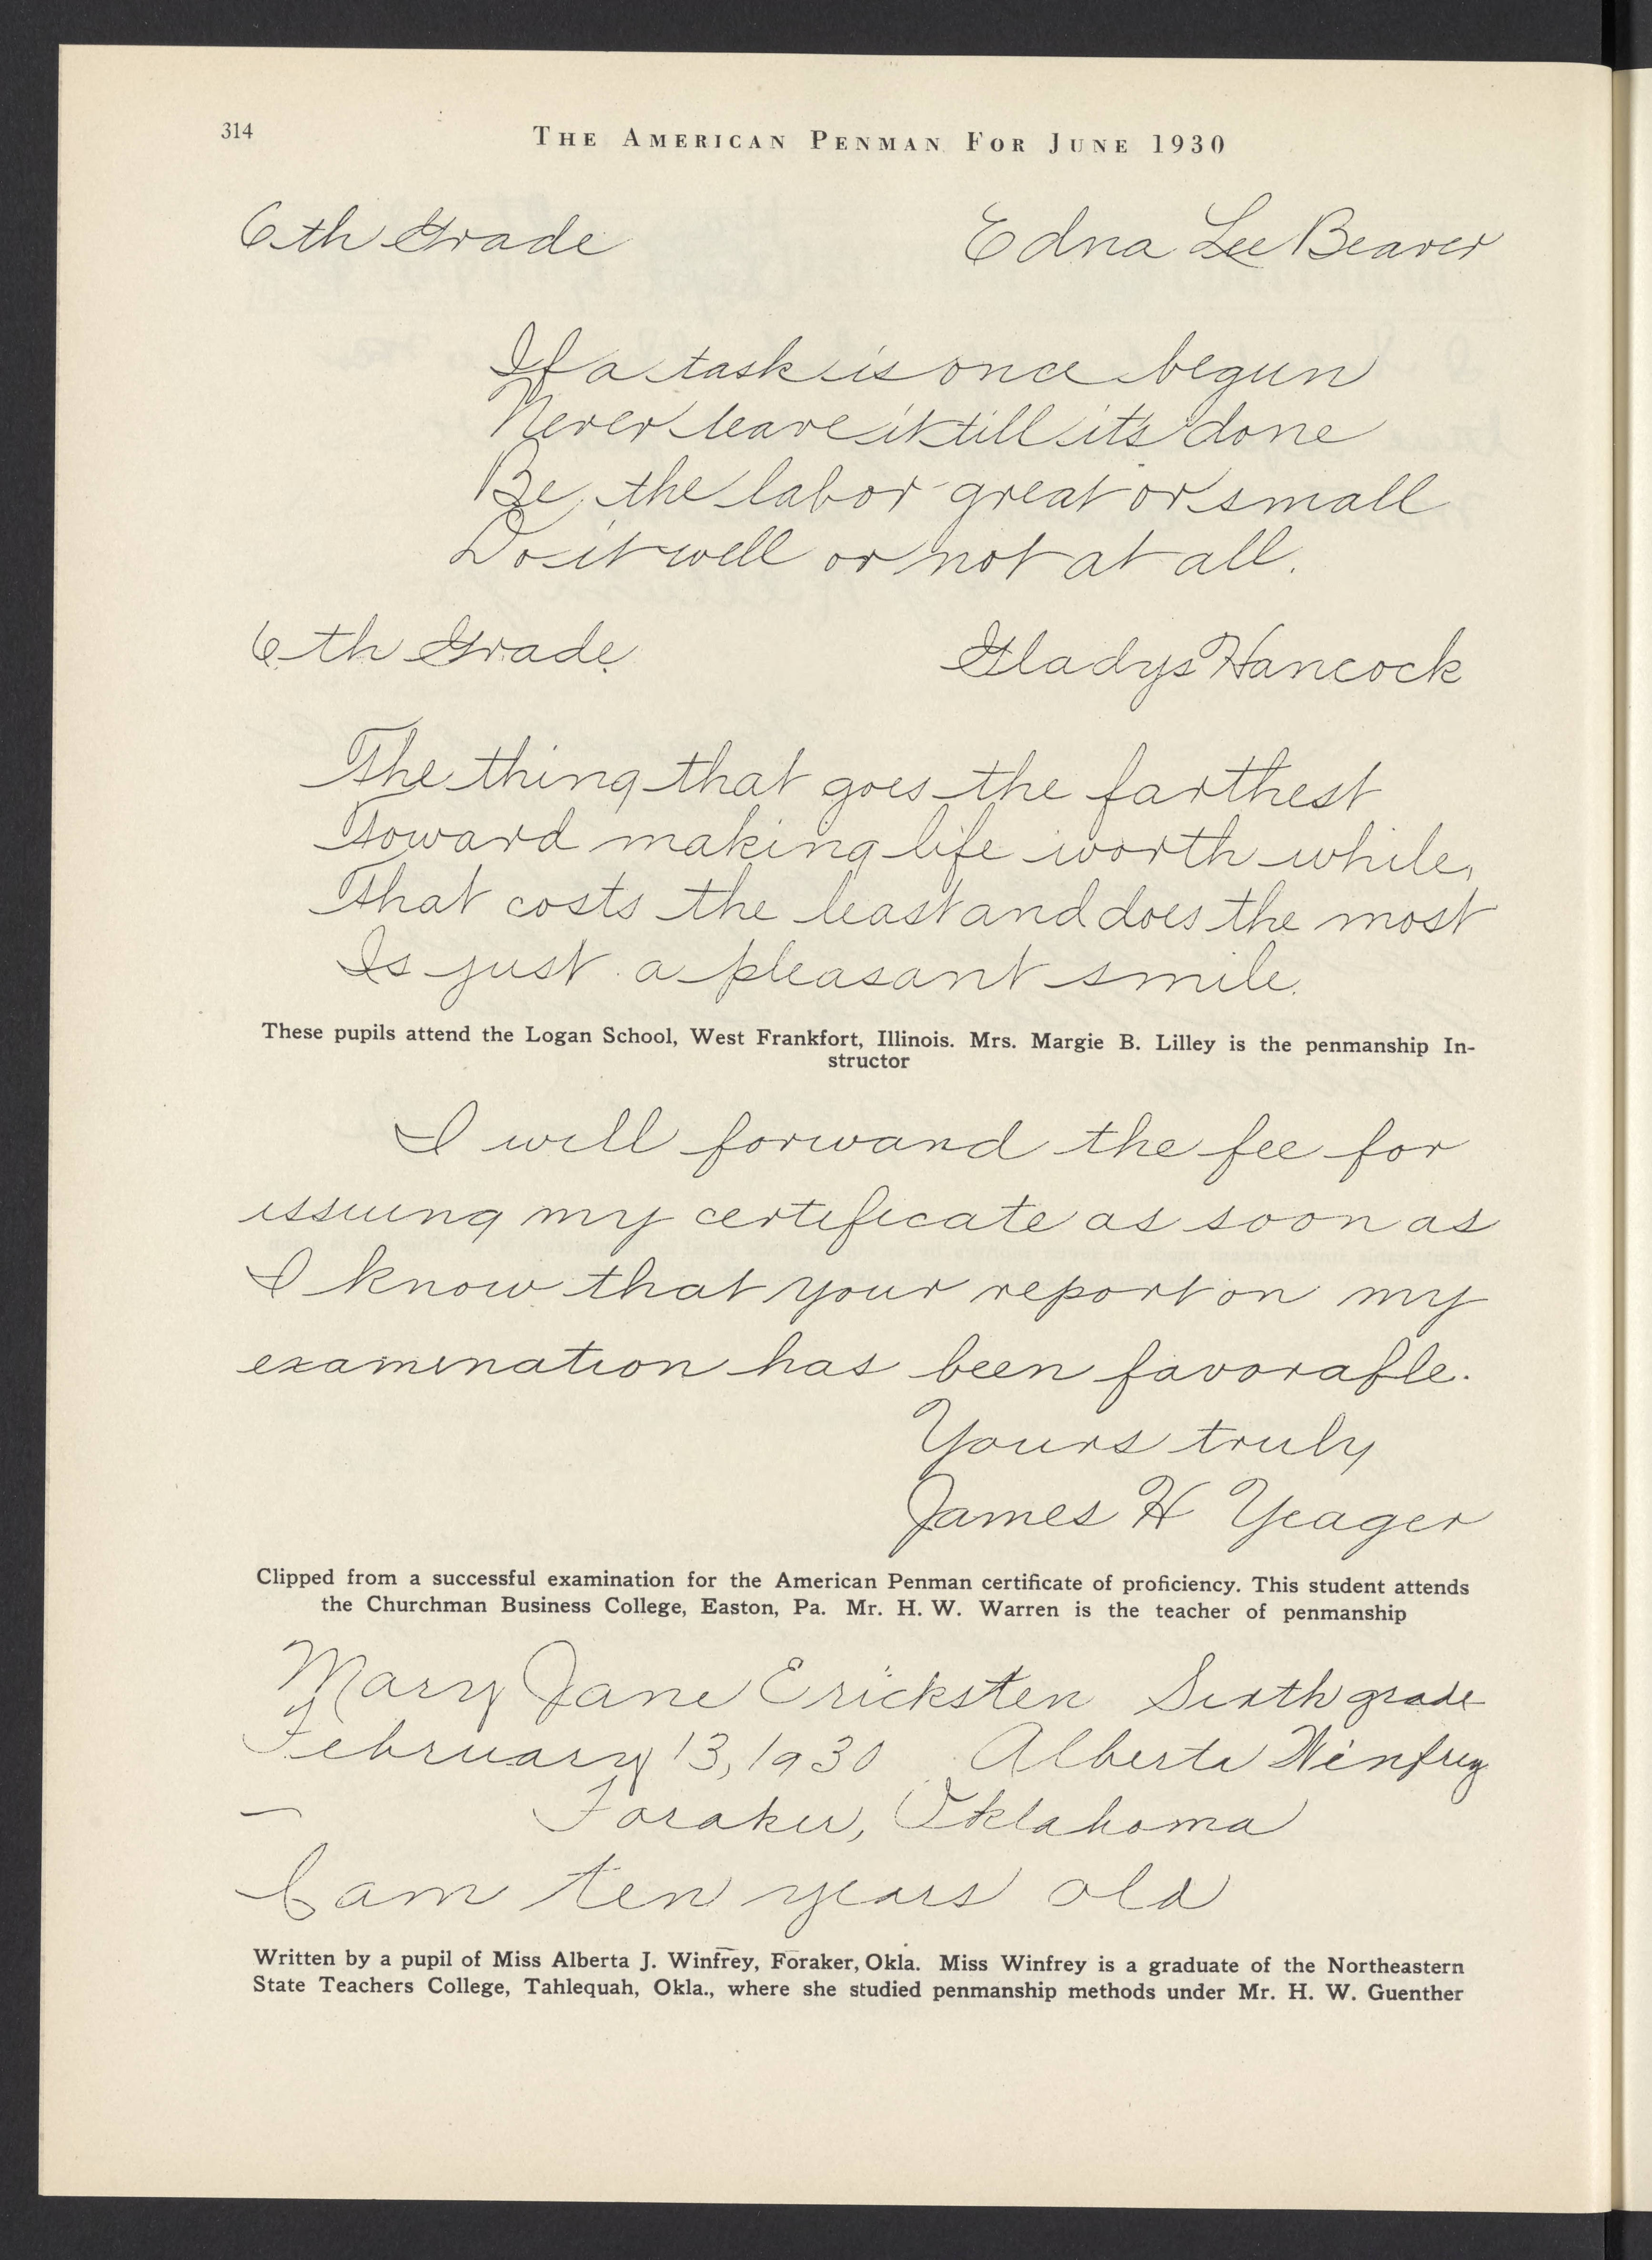 314
THE AMERICAN PENMAN FOR JUNE 1930
6th Grade Edna Lee Beaver
If a task is once begun
Never leave it till it's done
Be the labor great or small
Do it well or not at all.
6th Grade Gladys Hancock
The thing that goes the farthest
Toward making life worth while,
That costs the least and does the most
Is just a pleasant smile.
These pupils attend the Logan School, West Frankfort, Illinois. Mrs. Margie B. Lilley is the penmanship In-
structor
I will forward the fee for
issuing my certificate as soon as
I know that your report on my
examination has been favorable.
Yours truly
James H Yeager
Clipped from a successful examination for the American Penman certificate of proficiency. This student attends
the Churchman Business College, Easton, Pa. Mr. H. W. Warren is the teacher of penmanship
Mary Jane Ericksten Sixth grade
February 13, 1930 Alberta Winfrey
Foraker, Oklahoma
I am ten years old
Written by a pupil of Miss Alberta J. Winfrey, Foraker, Okla. Miss Winfrey is a graduate of the Northeastern
State Teachers College, Tahlequah, Okla., where she studied penmanship methods under Mr. H. W. Guenther